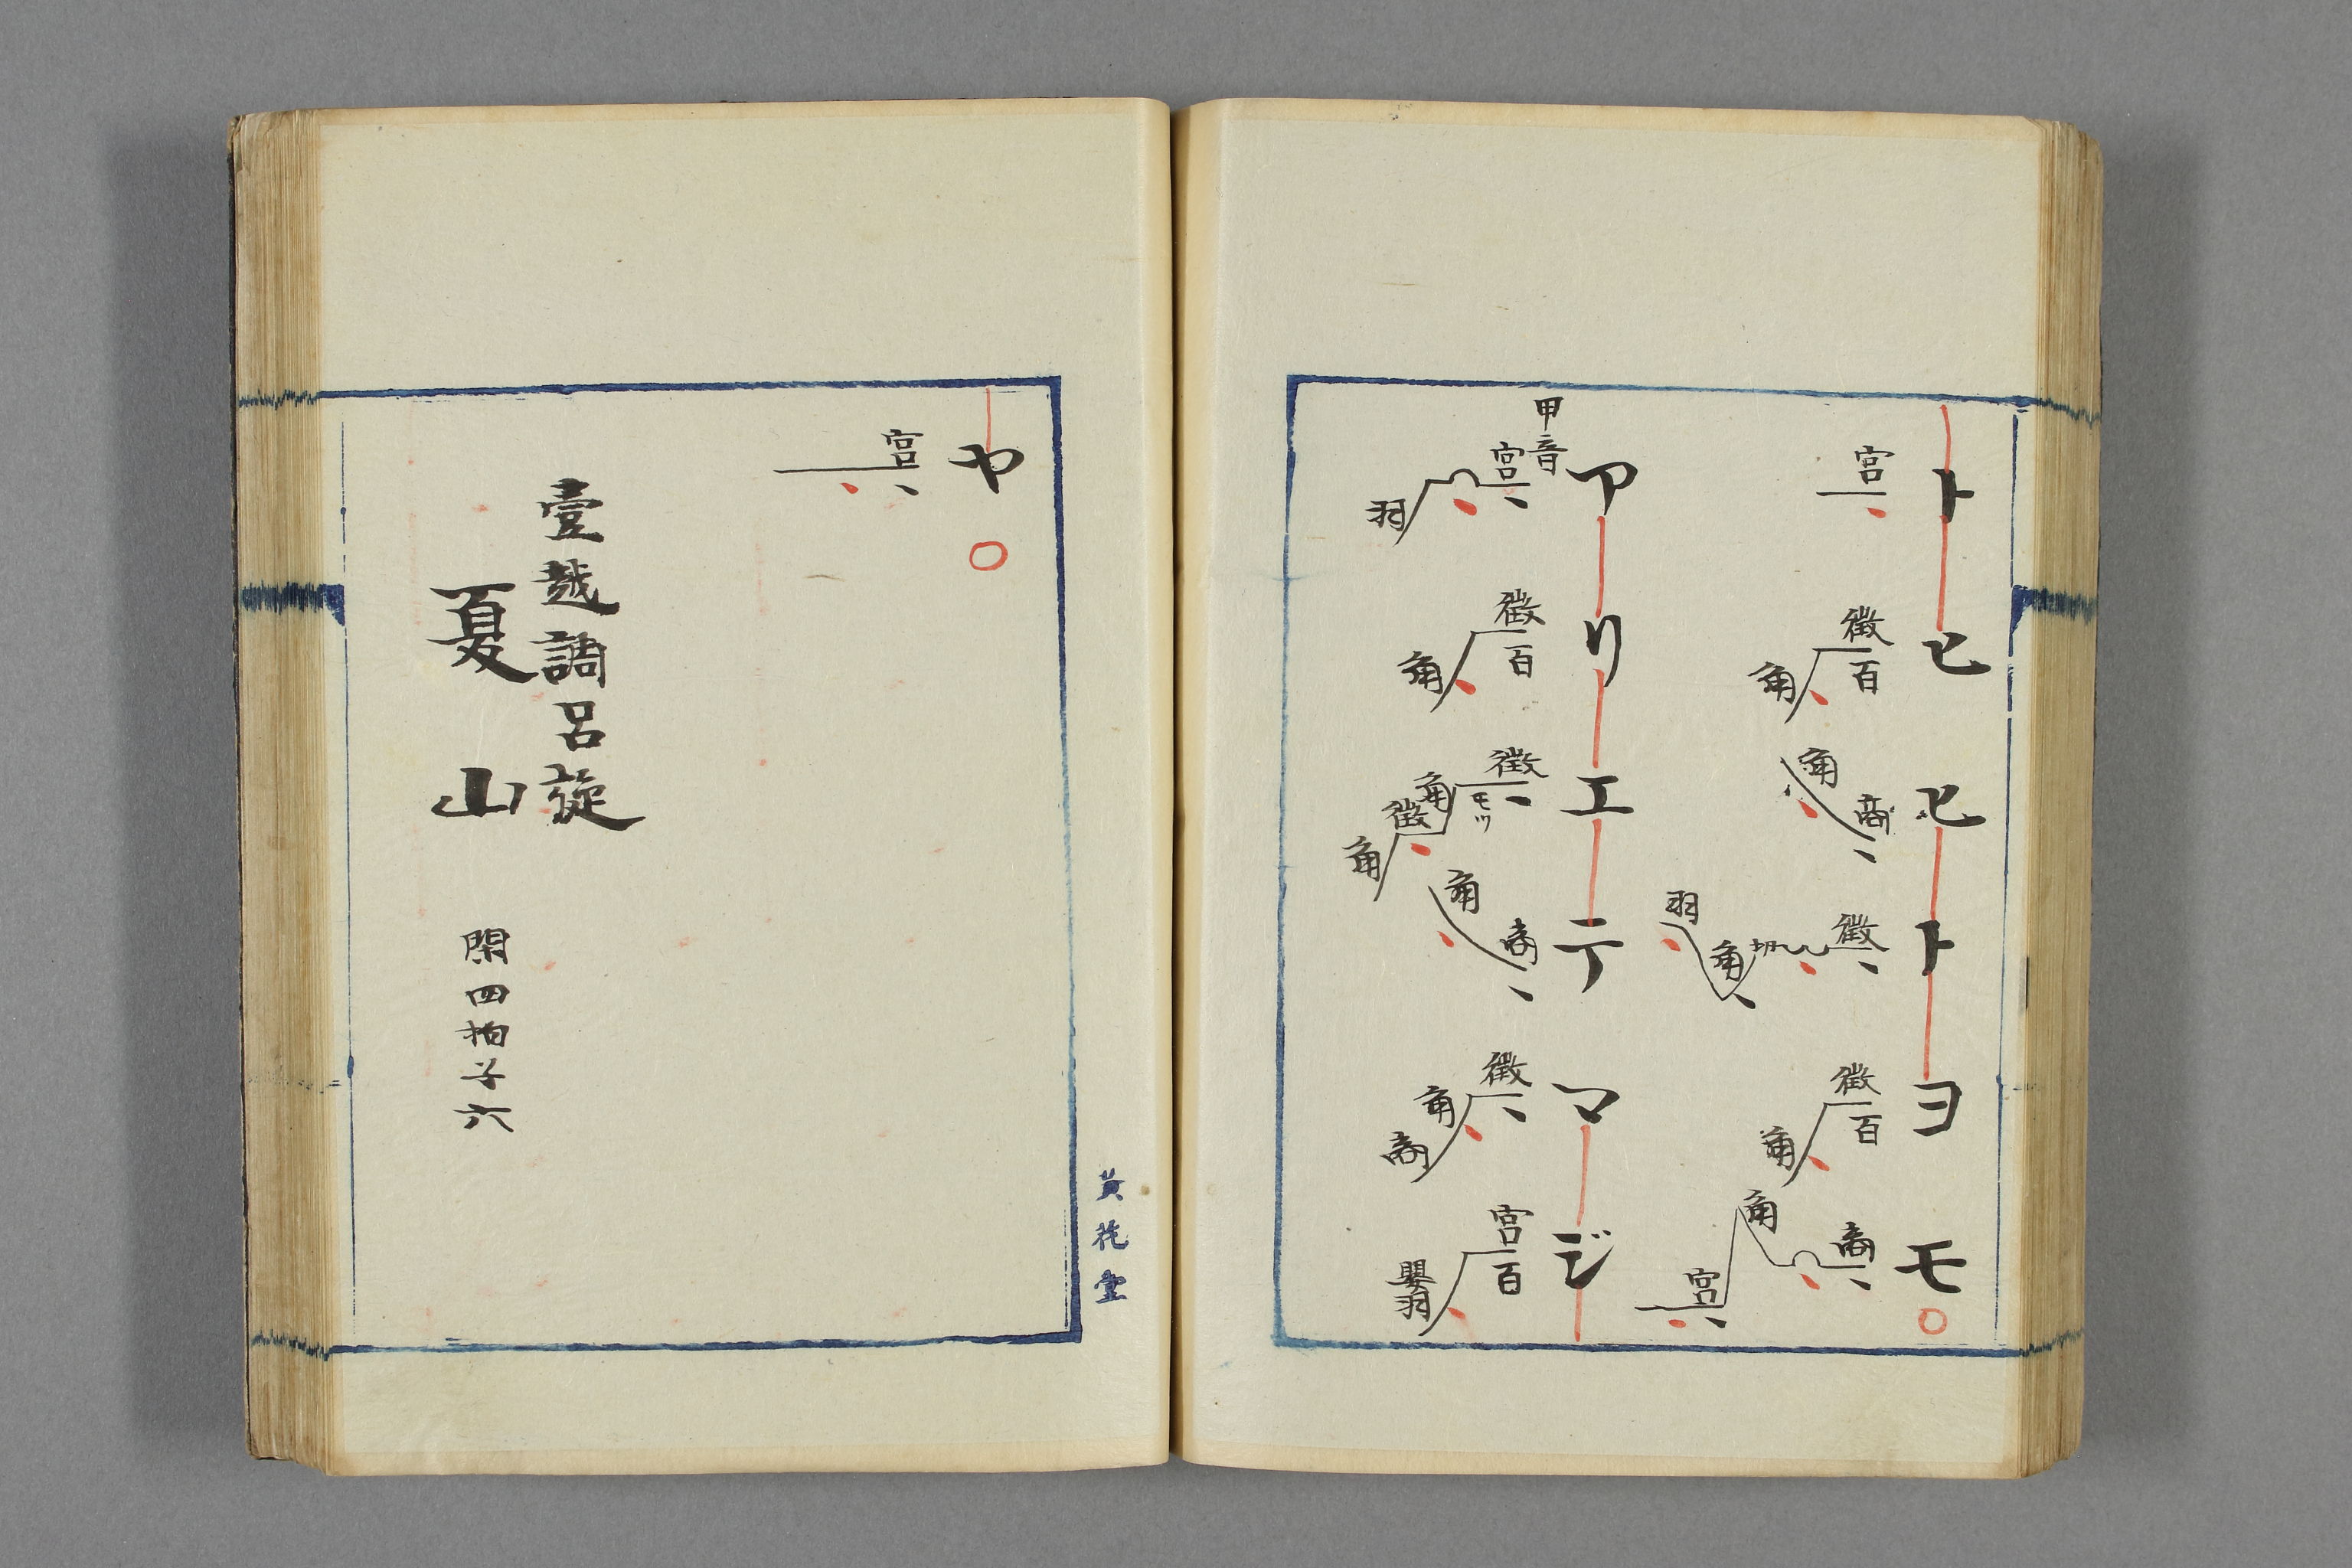 トヒヒトヨモ
宮
徴百角
角商
徴切角羽
徴百角
商角宮
アリエテマジ
甲音
宮羽
徴百角
徴モツ角徴角
角商
徴角商
宮百嬰羽
ヤ
宮
壹越調呂旋
夏山 閑四拍子六
黄花堂